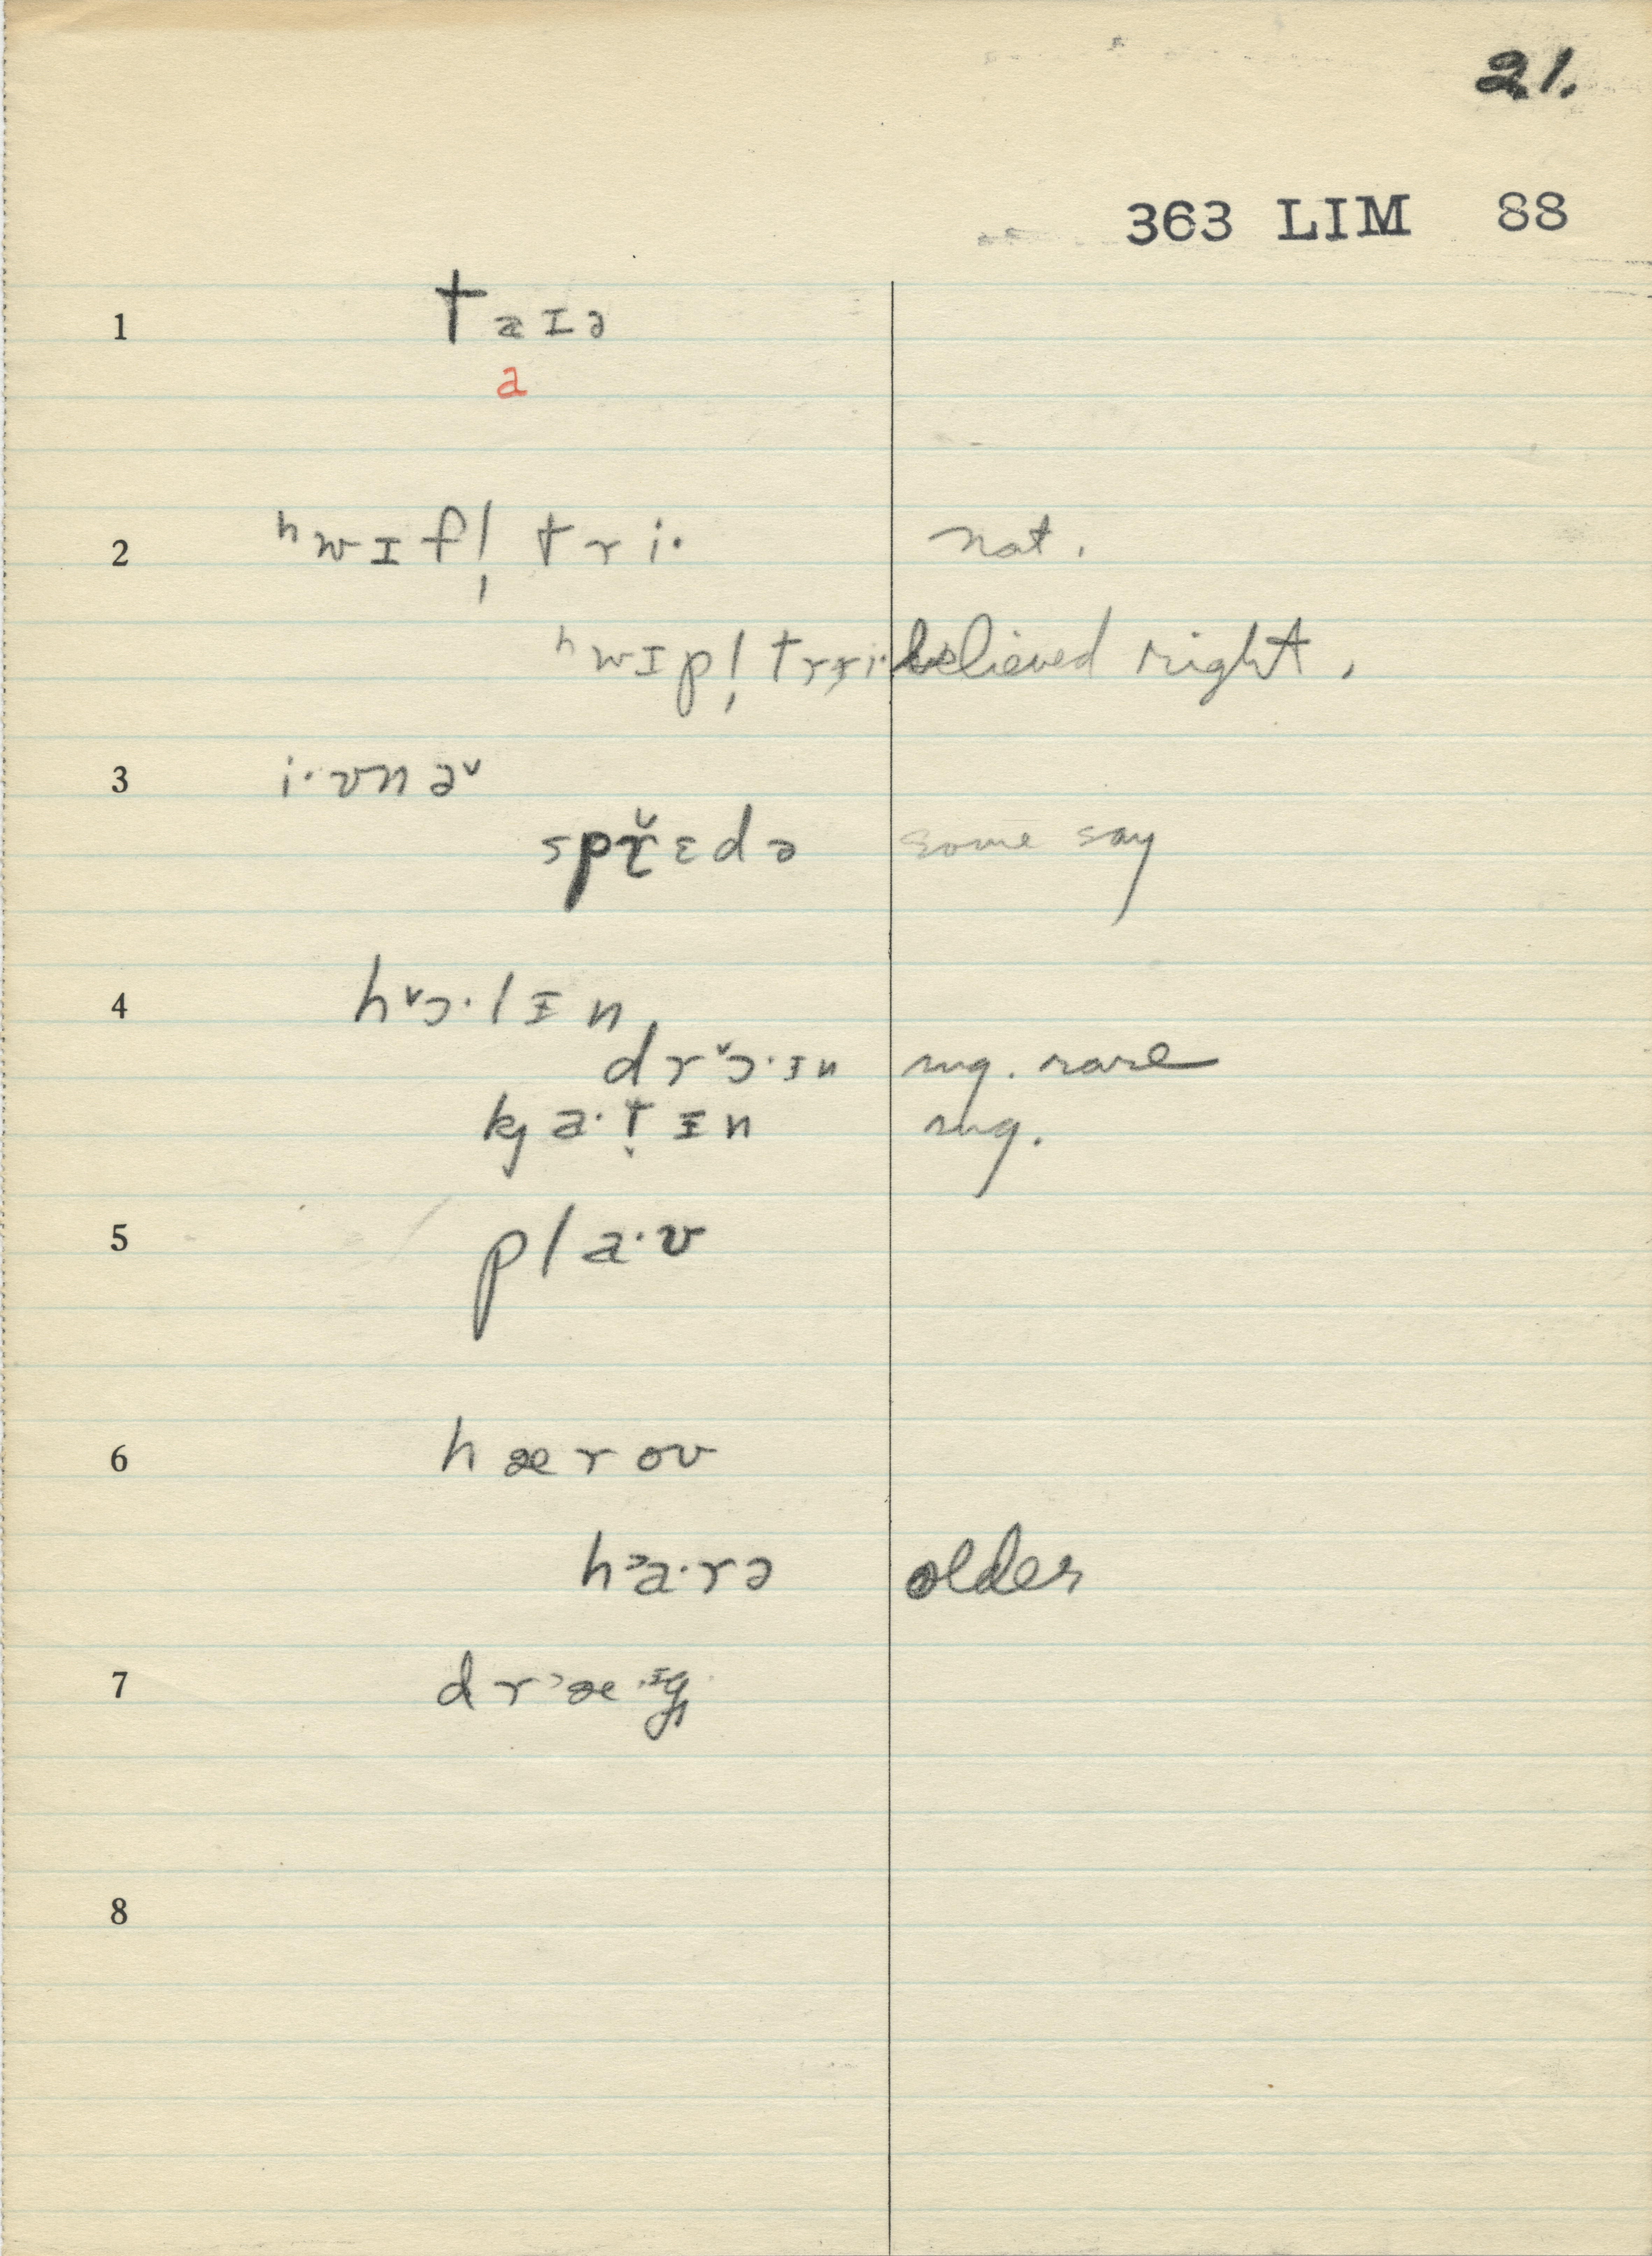 21.
363 LIM 88
1 taɪə
a
2 ʰwɪfl̩ tri· nat.
ʰwɪpl̩ trɪi· believed right.
3 i·vnəˇ
spř̜ɛdə some say
4 hˇɔ·lɪn
drˇɔ·ɪn sug. rare
kja·t̬ɪn sug.
5 pla·ʊ
6 hæroʊ
h˃a·rə older
7 dr˃æ·ᶦg
8